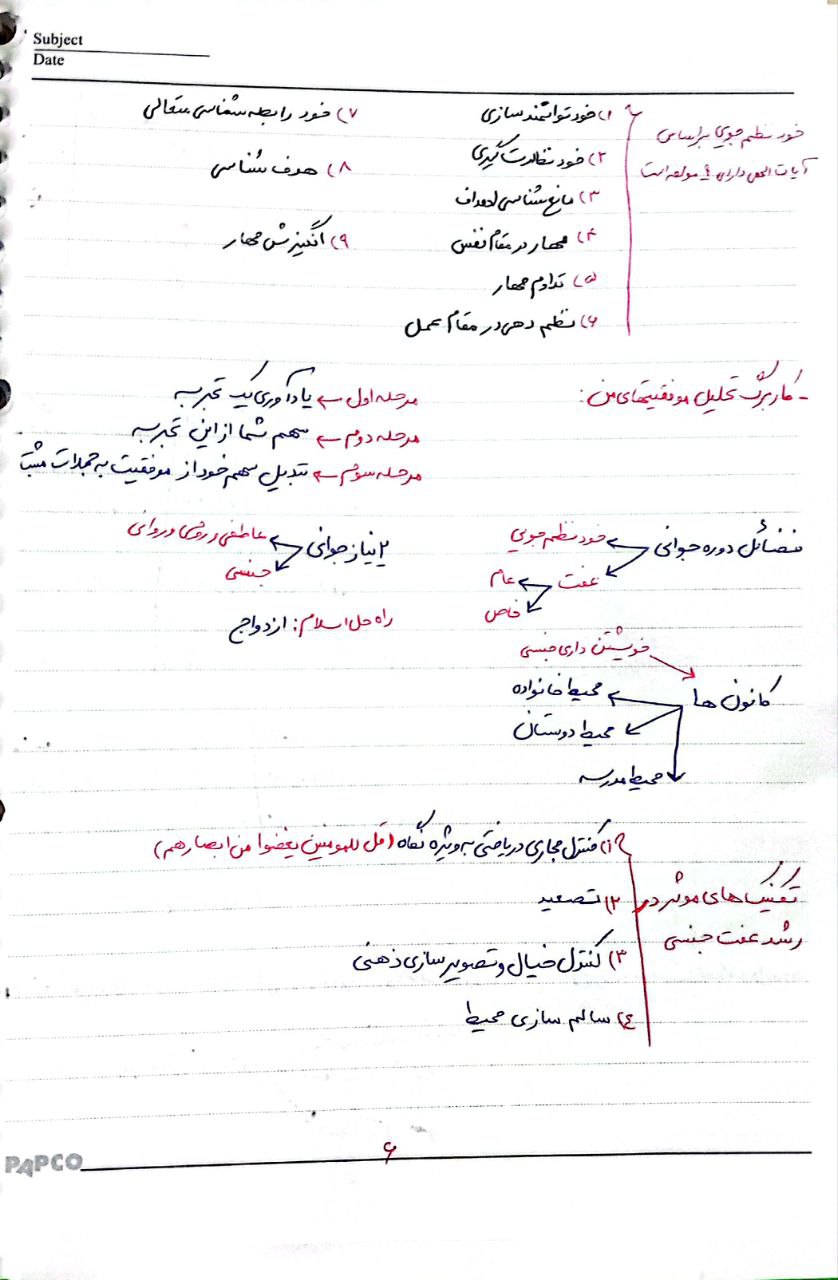 Subject
Date
خود نظم جویی براساس
آیات الهی دارای ۹ مولفه است
۱) خود توانمند سازی
۲) خود نظارت گیری
۳) مانع شناسی اهداف
۴) مهار در مقام نفس
۵) تداوم مهار
۶) نظم دهی در مقام عمل
۷) خود رابطه شناسی متعالی
۸) هدف شناسی
۹) انگیزش مهار
- کاربرگ تحلیل موفقیتهای من:
مرحله اول ← یادآوری یک تجربه
مرحله دوم ← سهم شما از این تجربه
مرحله سوم ← تبدیل سهم خود از موفقیت به جملات مثبت
فضائل دوره جوانی
خود نظم جویی
عفت ← عام
خاص
۲ نیاز جوانی
عاطفی و روحی و روانی
جنسی
راه حل اسلام: ازدواج
خویشتن داری جنسی
کانون ها
محیط خانواده
محیط دوستان
محیط مدرسه
تکنیک های موثر در
رشد عفت جنسی
۱) کنترل مجاری دریافتی به ویژه نگاه (قل للمومنین یغضوا من ابصارهم)
۲) تصعید
۳) کنترل خیال و تصویر سازی ذهنی
۴) سالم سازی محیط
۶
PAPCO